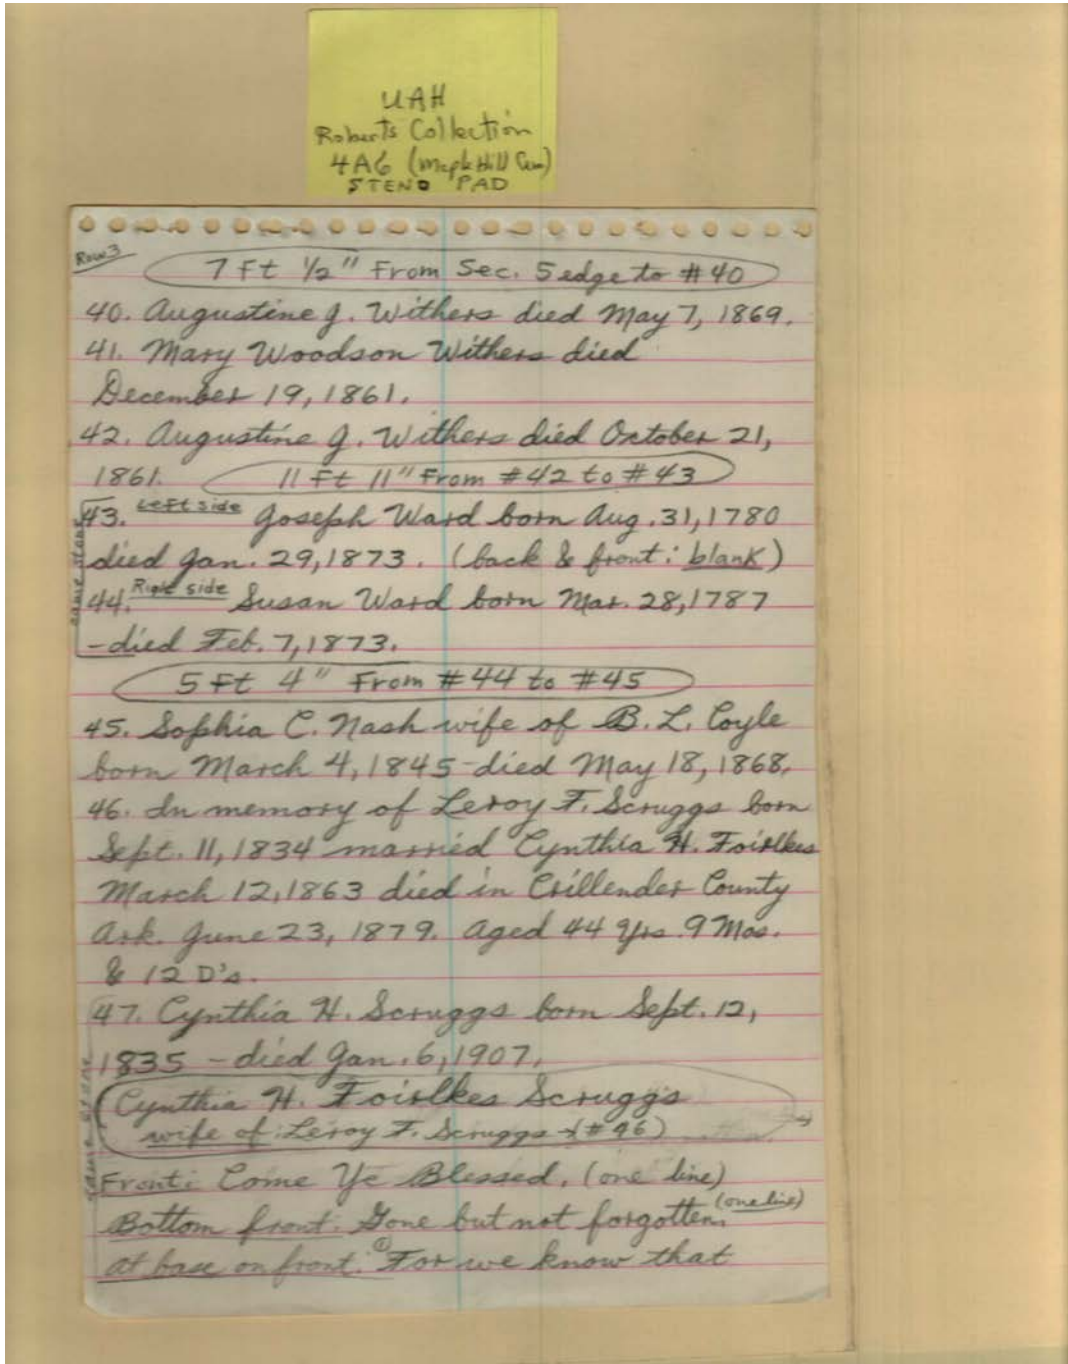 UAH
Roberts Collection
4A6 (Maple Hill Cem)
STENO PAD
Row 3
7 Ft 1/2" From Sec. 5 edge to #40
40. Augustine J. Withers died May 7, 1869.
41. Mary Woodson Withers died
December 19, 1861.
42. Augustine J. Withers died October 21,
1861.
11 Ft 11" From #42 to #43
same stone
43. Left side Joseph Ward born Aug. 31, 1780
died Jan. 29, 1873. (back & front: blank)
44. Right side Susan Ward born Mar. 28, 1787
- died Feb. 7, 1873.
5 Ft 4" From #44 to #45
45. Sophia C. Nash wife of B. L. Coyle
born March 4, 1845 - died May 18, 1868.
46. In memory of Leroy F. Scruggs born
Sept. 11, 1834 married Cynthia H. Foirlkes
March 12, 1863 died in Crillender County
Ark. June 23, 1879. Aged 44 Yrs. 9 Mos.
& 12 D's.
same stone
47. Cynthia H. Scruggs born Sept. 12,
1835 - died Jan. 6, 1907.
Cynthia H. Foirlkes Scruggs
wife of: Leroy F. Scruggs → (#46)
Front: Come Ye Blessed. (one line)
Bottom front: Gone but not forgotten. (one line)
at base on front: ① For we know that